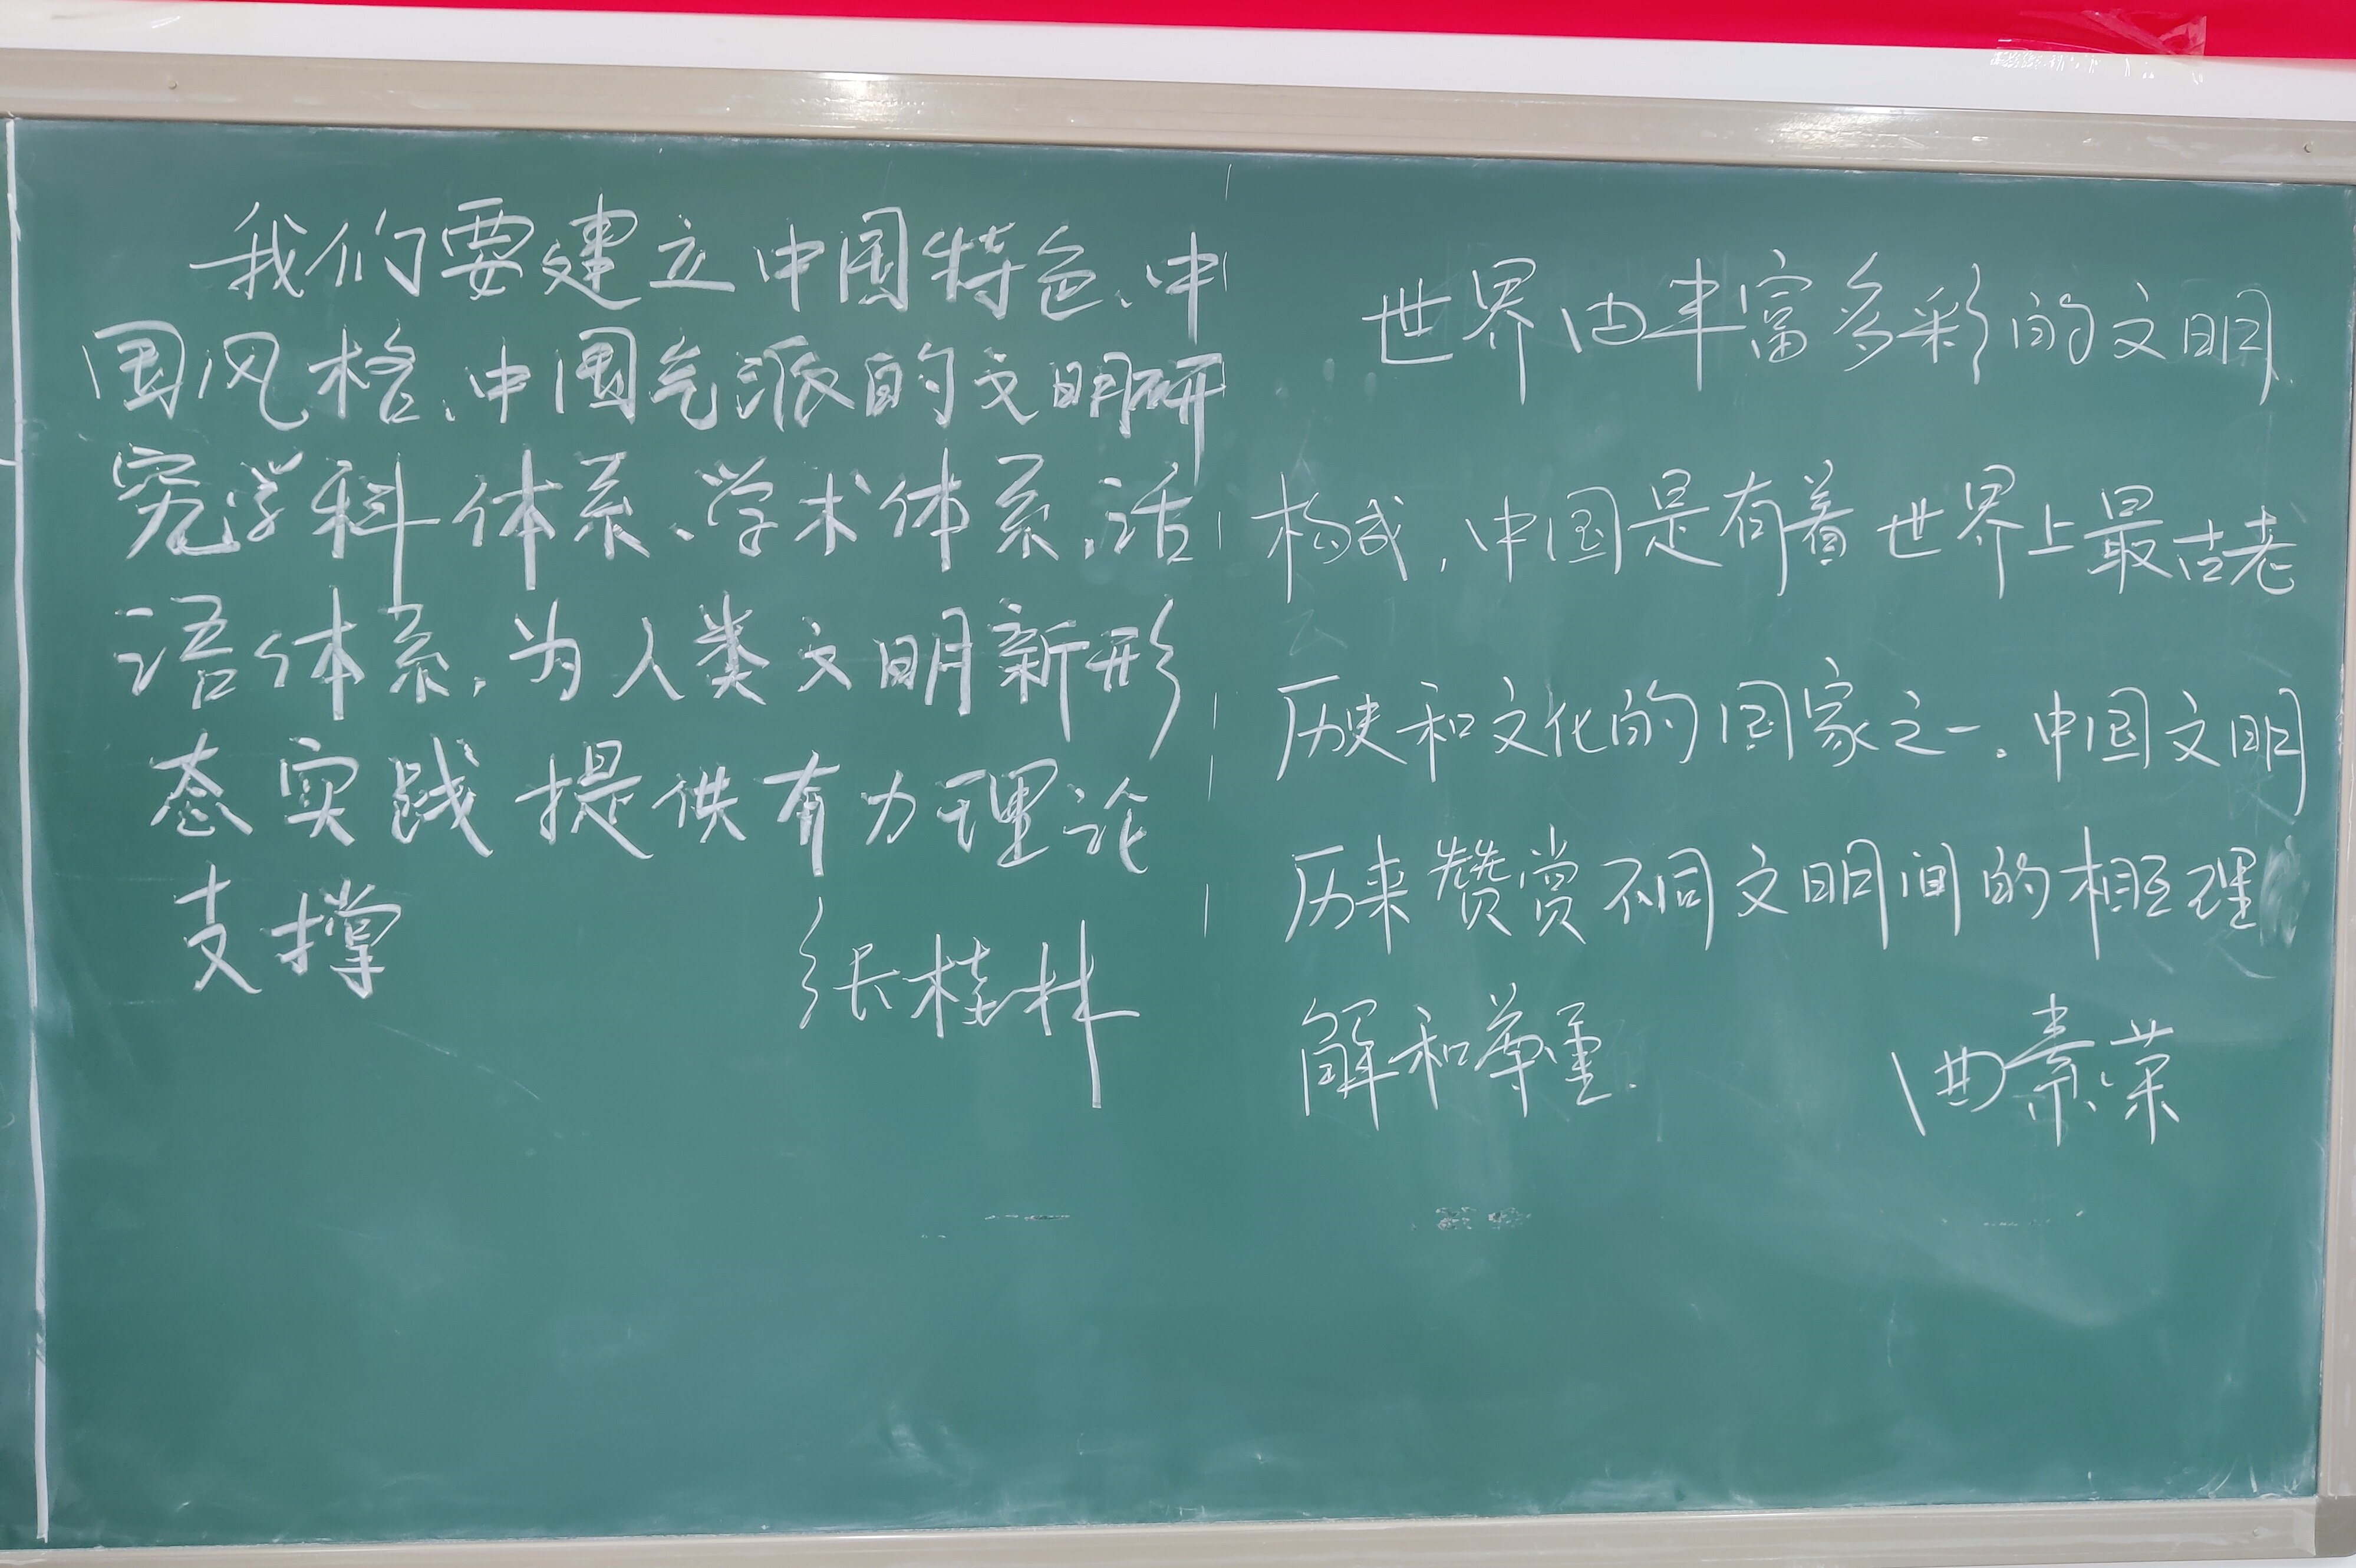 我们要建立中国特色、中
国风格、中国气派的文明研
究学科体系、学术体系、话
语体系，为人类文明新形
态实践提供有力理论
支撑
张桂林
世界由丰富多彩的文明
构成，中国是有着世界上最古老
历史和文化的国家之一。中国文明
历来赞赏不同文明间的相互理
解和尊重.
曲素荣